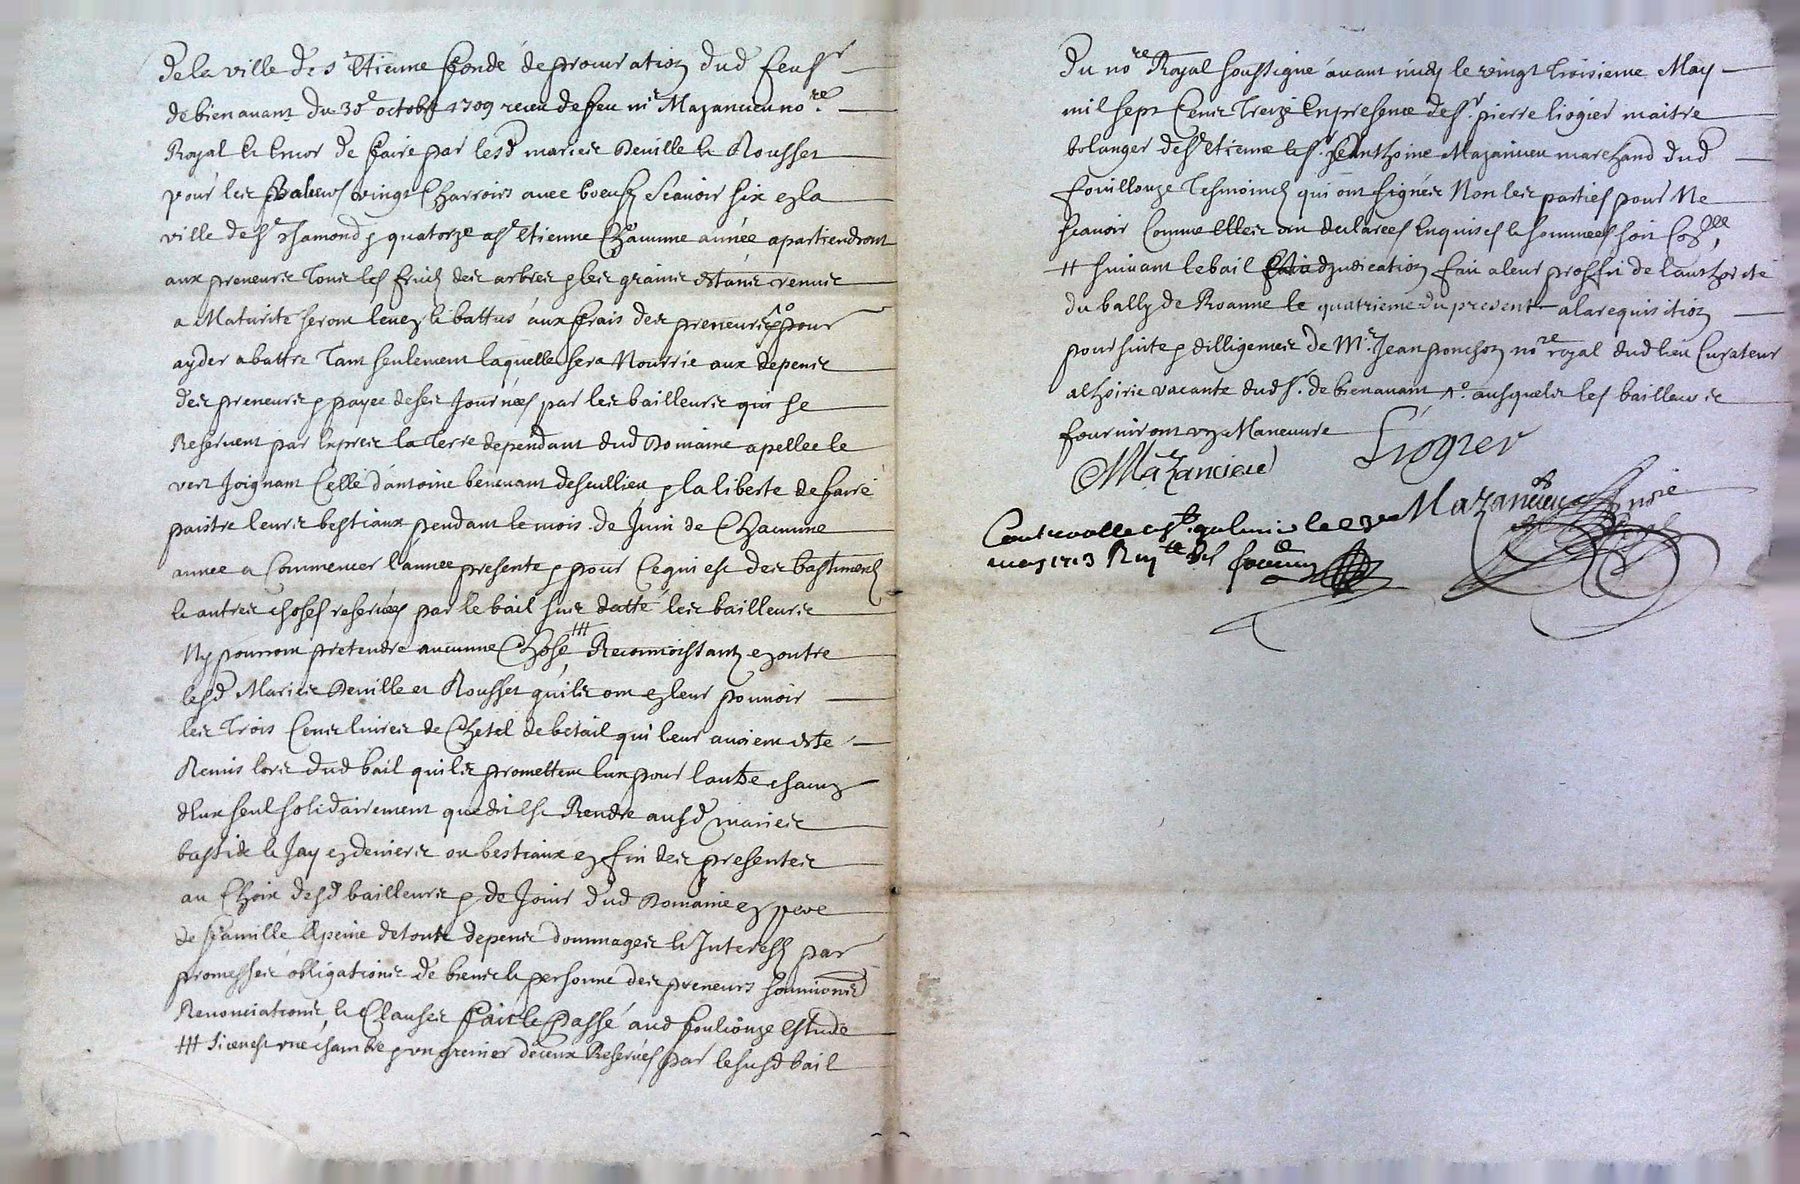 de la ville de St Etienne fondé de procuration dud feu Sr
de bienavant du 30e octobre 1709 receu de feu me Mazancieu nore
Royal et encor de faire par lesd mariés Deville et Rousset
pour les Bailleurs vingt Charrois avec boeufs scavoir six en la
ville de St chamond et quatorze a St Etienne Chacunne année apartiendront
aux preneurs tous les fruicts des arbres et les grains estants crenus
a Maturité seront levez et battus aux frais des preneurs pour
ayder a battre tant seulement laquelle sera Nourrie aux depens
des preneurs et payee de ses Journées par les bailleurs qui se
Reservent par Exprez la Terre dependant dud Domaine apellee le
vert Joignant Celle d'antoine benevant et la liberté de faire
paistre leurs bestiaux pendant le mois de Juin de Chacunne
annee a Commencer l'annee presente et pour Ce qui est des bastiments
et autres choses reservées par le bail sus datté les bailleurs
Ny pourront pretendre aucunne Chose ## Reconnoissants en outre
lesd Mariés Deville et Rousset qu'ils ont en leur pouvoir
les Trois Cents livres de Chetel de betail qui leur avoient esté
Remis lors dud bail qu'ils promettent l'un pour l'autre chacun
d'Eux seul solidairement que dit est Rendre ausd mariés
bastide et Jay en deniers ou bestiaux en fin des presentes
au Choix desd bailleurs et de Jouir dud Domaine en pere
de famille a peine de touts depens dommages et Interests par
promesses obligations de biens et personne des preneurs soumissions
Renonciations et Clauses fait et Passé aud fouliouze Estude
## si ce n'est une chambre et un grenier de ceux Reservés par le susd bail
du nore Royal soussigne avant midy le vingt Troisieme May
mil sept Cents Treize En presence de sr pierre liogier maitre
bolanger de St Etienne et sr Jeanthoine Mazancieu marchand dud
fouillouze Tesmoincts qui ont signés Non les parties pour Ne
scavoir Comme Elles ont declarees Enquises et sommees soit Conlle
# suivant le bail adjudication fait a leur proffit de l'authorité
du bally de Roanne le quatrieme du present a la requisition
poursuite et dilligences de Me Jean ponchon nore royal dud lieu Curateur
a l'hoirie vacante dud sr de bienavant ausquels les bailleurs
fourniront un Maneuvre
Liogier
Mazancieu
Mazancieu nore
Controllé a St galmier le
may 1713 Reçu